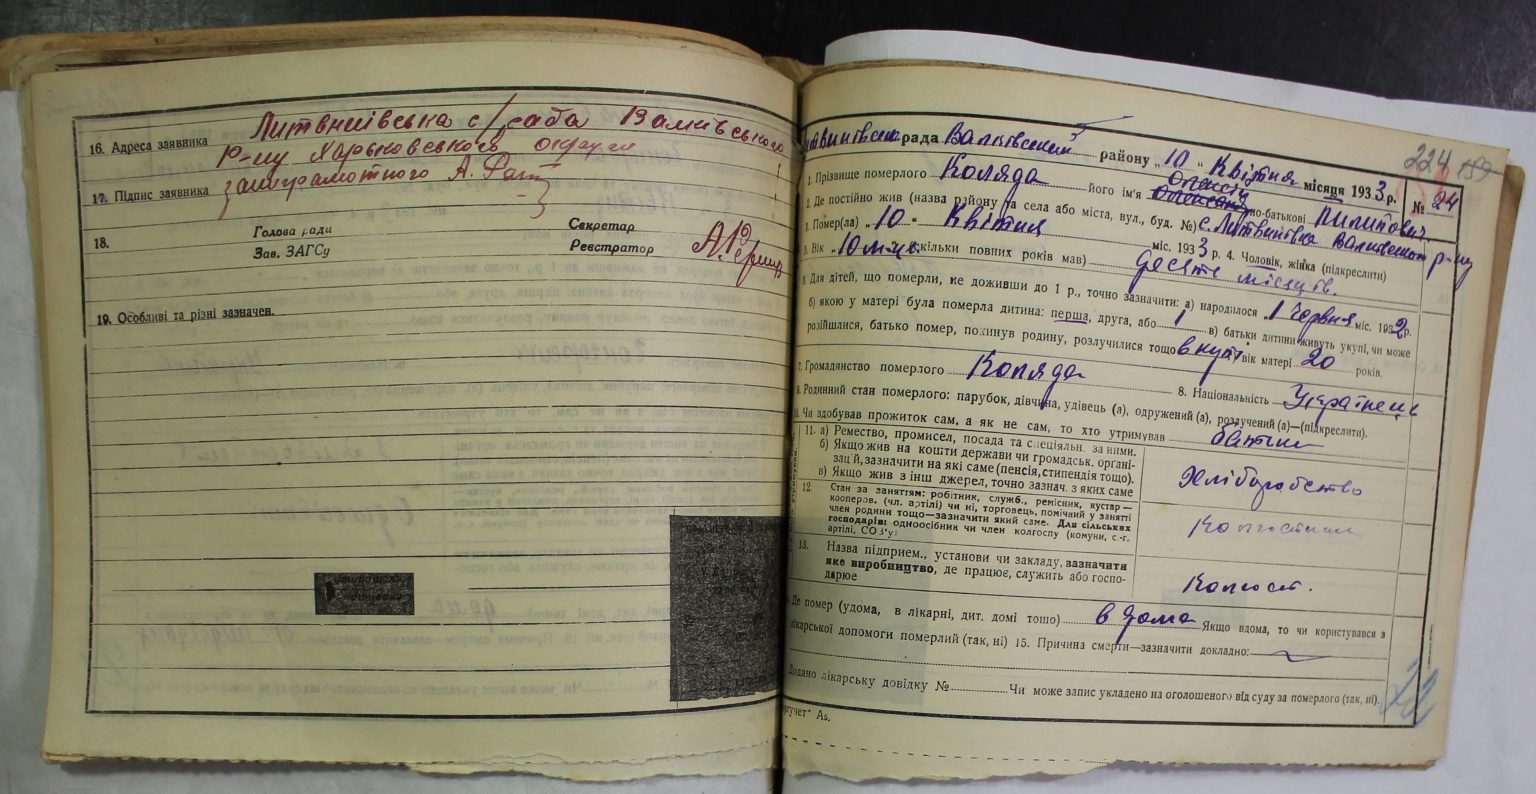 16. Адреса заявника Литвинівська с/рада Валківського
р-ну Харьковського округи
17. Підпис заявника
18.
Голова ради
Зав. ЗАГСу
Секретар
Реєстратор
19. Особливі та різні зазначен.
рада Валківський району „10" Квітня місяця 1933 р.
224 189
№ 24
1. Прізвище померлого Коляда його ім'я Олексій по-батькові Пилипович
2. Де постійно жив (назва району та села або міста, вул., буд. №) с. Литвинівка Валківського р-ну
3. Помер(ла) „10" Квітня міс. 1933 р. 4. Чоловік, жінка (підкреслити)
5. Вік „10 міс. (скільки повних років мав) десять місяців.
6. Для дітей, що померли, не доживши до 1 р., точно зазначити: а) народилося „1 Червня міс. 1932 р.
б) якою у матері була померла дитина: перша, друга, або 1 в) батьки дитини живуть укупі, чи може
розійшлися, батько помер, покинув родину, розлучилися тощо вкупі вік матері 20 років.
7. Громадянство померлого Коляда 8. Національність Українець
9. Родинний стан померлого: парубок, дівчина, удівець (а), одружений (а), розлучений (а)—(підкреслити).
10. Чи здобував прожиток сам, а як не сам, то хто утримував батьки
11. а) Ремество, промисел, посада та спеціяльн. за ними.
б) Якщо жив на кошти держави чи громадськ. органі-
зац'й, зазначити на які саме (пенсія, стипендія тощо).
в) Якщо жив з інш джерел, точно зазнач. з яких саме
Хліборобство
12. Стан за заняттям: робітник, служб., ремісник, кустар—
кооперов. (чл. артілі) чи ні, торговець, помічний у занятті
член родини тощо—зазначити який саме. Для сільських
господарів: одноосібник чи член колгоспу (комуни, с.-г.
артілі, СОЗ'у)
Колгоспник
13. Назва підприєм., установи чи закладу, зазначити
яке виробництво, де працює, служить або госпо-
дарює
Колгосп.
Де помер (удома, в лікарні, дит. домі тошо) в дома Якщо вдома, то чи користувався з
лікарської допомоги померлий (так, ні) 15. Причина смерти—зазначити докладно:
Додано лікарську довідку № Чи може запис укладено на оголошеного від суду за померлого (так, ні).